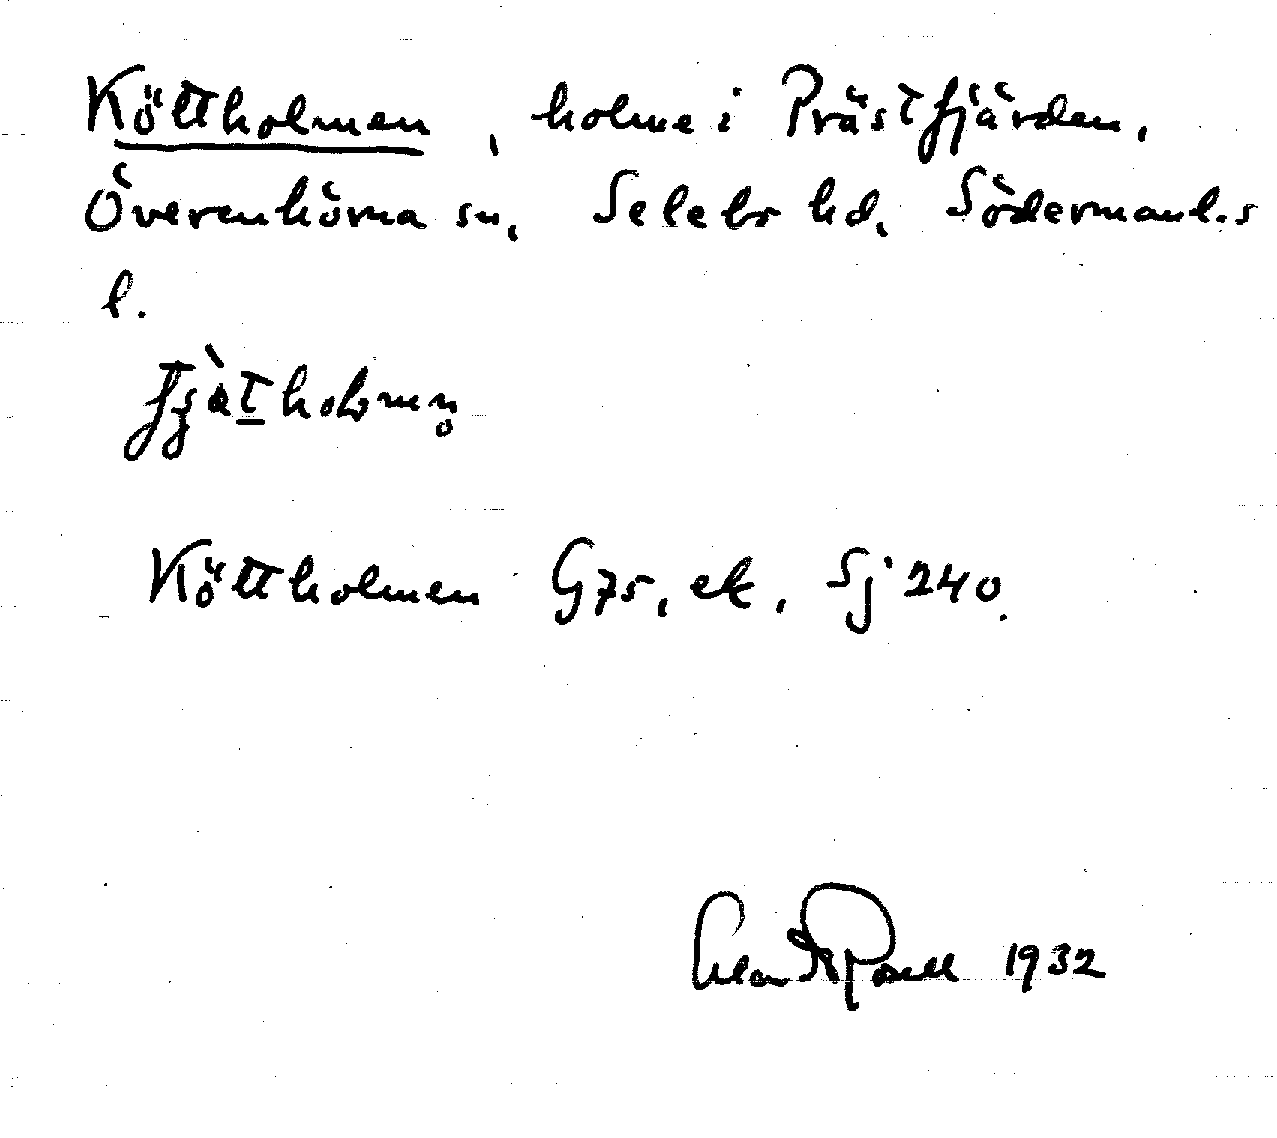 Köttholmen, holme i Prästfjärden,
Överenhörna sn, Selebo hd, Södermanl.s
l.
Köttholmen G75, ek, Sj 240.
1932